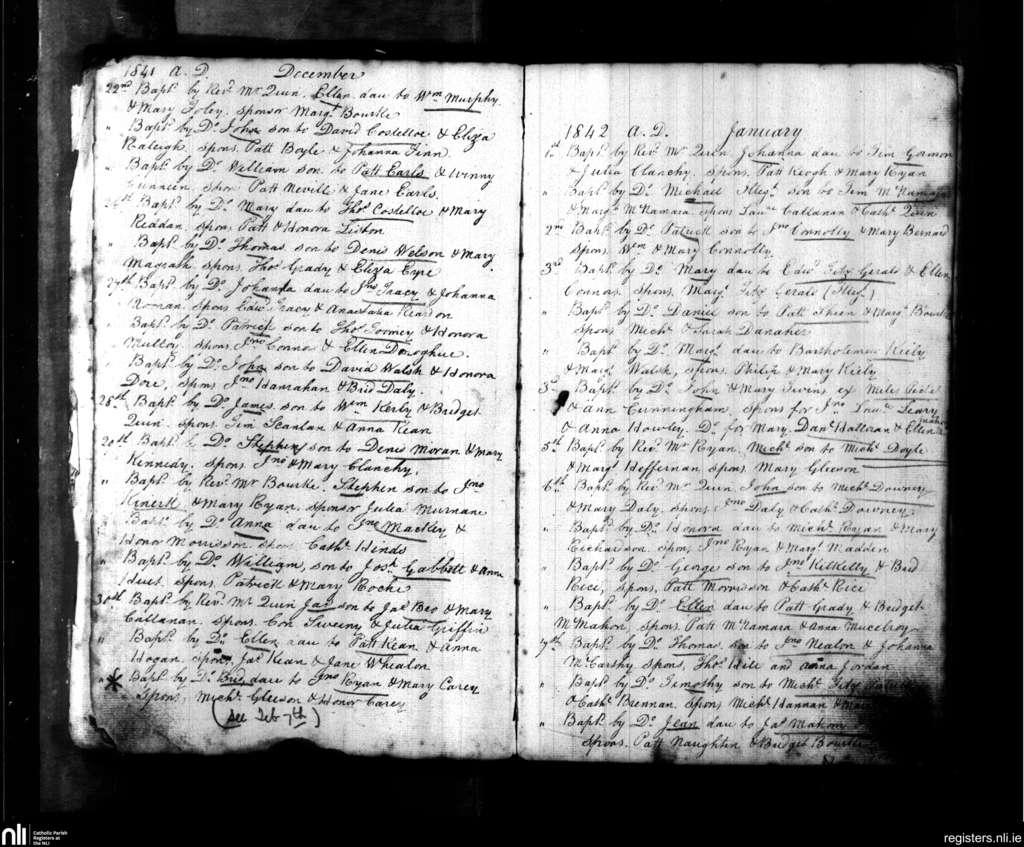 1841 A.D. December
22nd Bapt. by Revd. Mr Quin Ellen dau to Wm Murphy
& Mary Foley. sponsor Margt Bourke
" Bapt. by Do. John son to David Costelloe & Eliza
Raleigh. spons. Patt Boyle & Johanna Finn.
" Bapt. by Do. William son to Patt Earls & Winny
spon. Patt Nevill & Jane Earls.
Bapt. by Do. Mary dau to Thos. Costelloe & Mary
Reddan. spons. Patt & Honora Liston
" Bapt. by Do. Thomas son to Denis Welson & Mary
Magrath. spons. Thos. Grady & Eliza Eyre
27th Bapt. by Do. Johanna dau to Jno Tracy & Johanna
Noonan. spons Edwd. Tracy & Anastatia Reardon
" Bapt. by Do. Patrick son to Thos. Toomey & Honora
Mulloy. spons. Jno Connor & Ellen Donoghue.
" Bapt. by Do. John son to David Walsh & Honora
Dore, spons Jno Hanrahan & Brid Daly.
28th Bapt. by Do. James son to Wm Kerly & Bridget
Quin. spons. Tim Scanlan & Anna Kean
Bapt. by Do. Stephen son to Denis Moran & Mary
Kennedy. spons. Jno & Mary Clanchy.
" Bapt. by Revd. Mr Bourke. Stephen son to Jno
& Mary Ryan. sponsor Julia Murnane
Bapt. by Do. Anna dau to Jno Mackey &
Honor Morrisson. spon. Cathe. Hinds
" Bapt. by Do. William, son to Josh. Gabbett & Anne
Hunt. spons. Patrick & Mary Roche
30th Bapt. by Revd. Mr Quin Jas son to Jas Beo & Mary
Callanan. spons. Con Sweeny & Julia Griffin
" Bapt. by Do. Ellen dau to Patt Kean & Anna
Hogan. spons. Jas. Kean & Jane Whealon
" Bapt. by Do. Brid dau to Jno Ryan & Mary Carey
Spons. Michl. Gleeson & Honor Carey
(See Feb 7th)
1842 A.D. January
1st Bapt. by Revd. Mr Quin Johanna dau to Tim Gorman
& Julia Clanchy. spons. Patt Keogh & Mary Ryan
" Bapt. by Do. Michael Illegt. son to Tim McNamara
& Margt. McNamara. spons Laure. Callanan & Cathe. Quin
2nd Bapt. by Do. Patrick son to Jno Connolly & Mary Bernard
spons. Wm & Mary Connolly
3rd Bapt. by Do. Mary dau to Edwd. Fitz Gerald & Ellen
Connors. Spons. Margt. Fitz Gerald (Illegt.)
" Bapt. by Do. Daniel son to Patt Sheen & Margt. Bourke
Spons. Michl. & Sarah Danaher
" Bapt. by Do. Margt. dau to Bartholemew Kiely
& Margt. Walsh, spons. Philip & Mary Kiely
3rd Bapt. by Do. John & Mary Twins, ex Miles
& Ann Cunningham. Spons for Jno, Laure. Leary
& Anna Howley. Do. for Mary. Danl. Halloran & Ellen
5th Bapt. by Revd. Mr Ryan. Michl. son to Michl. Doyle
& Margt. Heffernan spons. Mary Gleeson
6th Bapt. by Revd. Mr Quin. John son to Michl. Downey
& Mary Daly. spons. Jno Daly & Cathe. Downey.
" Bapt. by Do. Honora dau to Michl. Ryan & Mary
Richardson. spons. Jno Ryan & Margt. Madden
" Bapt. by Do. George son to Jno Kilkelly & Brid
Rice, spons, Patt Morrisson & Cathe. Rice
" Bapt. by Do. Ellen dau to Patt Grady & Bridget
McMahon, spons. Patt McNamara & Anna Mucelroy
7th Bapt. by Do. Thomas son to Jno Nealon & Johanna
McCarthy Spons. Thos. Hill and Anna Jordan
" Bapt. by Do. Timothy son to Michl. Fitz
& Cathe. Brennan. Spons Michl. Hannan &
" Bapt. by Do. Jean dau to Jas. Mahon
Spons. Patt Naughten & Bridget Bourke
nli
Catholic Parish
Registers at
the NLI
registers.nli.ie